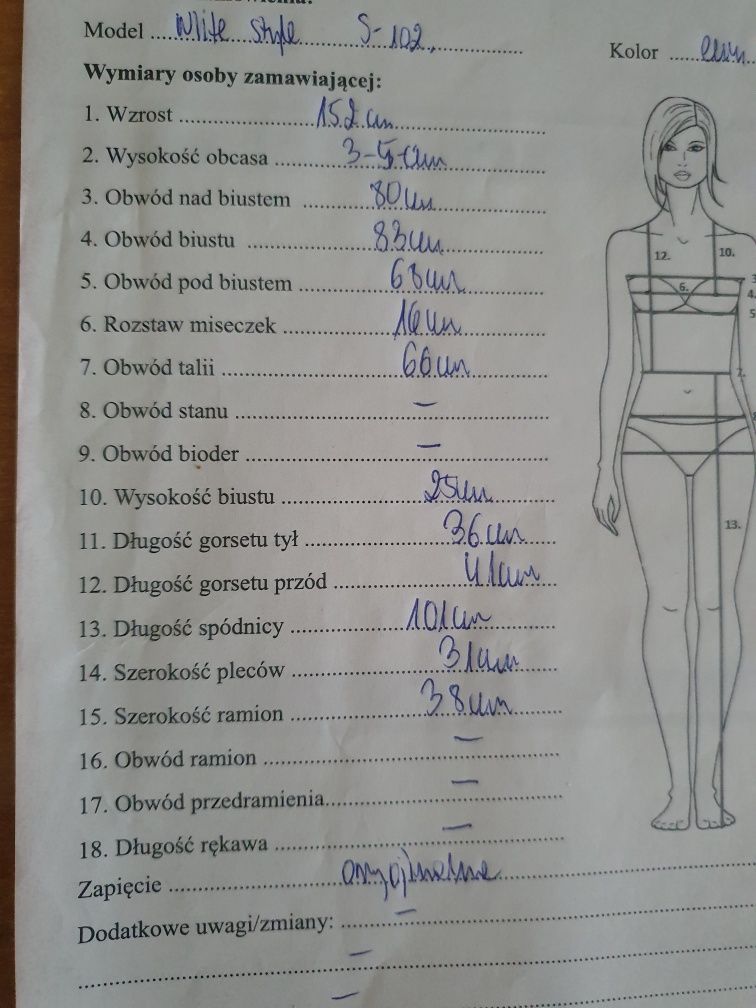 Model ..... White Style S-102,
Kolor ..... ecru
Wymiary osoby zamawiającej:
1. Wzrost ..... 152 cm
2. Wysokość obcasa ..... 3-5 cm
3. Obwód nad biustem ..... 80 cm
4. Obwód biustu ..... 83 cm
5. Obwód pod biustem ..... 68 cm
6. Rozstaw miseczek ..... 16 cm
7. Obwód talii ..... 66 cm
8. Obwód stanu ..... –
9. Obwód bioder ..... –
10. Wysokość biustu ..... 25 cm
11. Długość gorsetu tył ..... 36 cm
12. Długość gorsetu przód ..... 41 cm
13. Długość spódnicy ..... 101 cm
14. Szerokość pleców ..... 31 cm
15. Szerokość ramion ..... 38 cm
16. Obwód ramion ..... –
17. Obwód przedramienia ..... –
18. Długość rękawa ..... –
Zapięcie ..... oryginalne
Dodatkowe uwagi/zmiany: ..... –
–
–
12.
10.
3
6.
4.
5
7.
13.